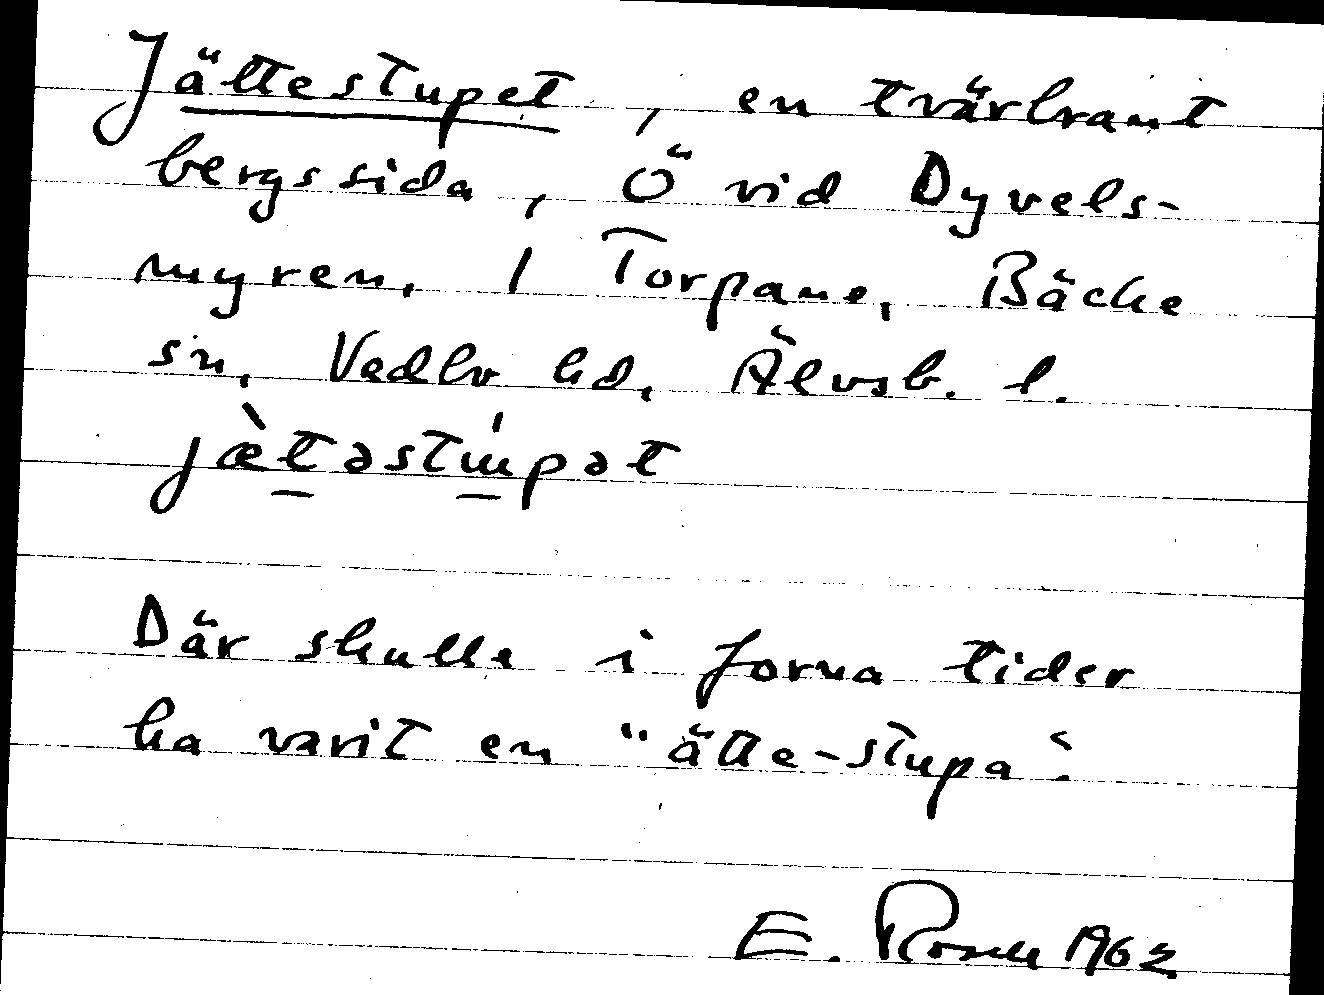 Jättestupet, en tvärbrant
bergssida, Ö vid Dyvels-
myren. 1 Torpane, Bäcke
sn, Vedbo hd, Älvsb. l.
jæ̀t̲əstɯ̲́pət
Där skulle i forna tider
ha varit en "ätte-stupa".
E. Rosell 1962